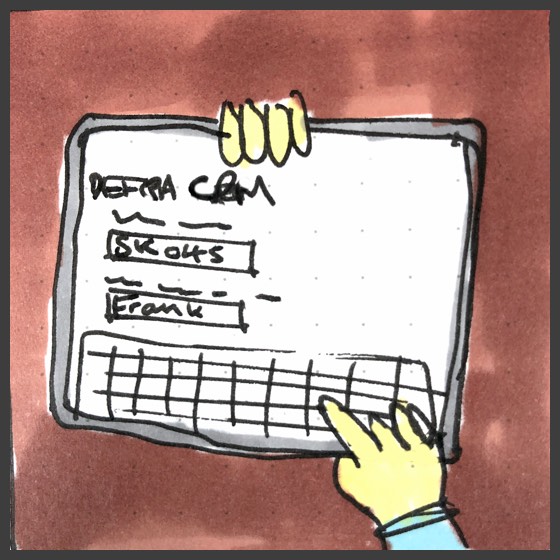 DEFRA CRM
SK045
Frank